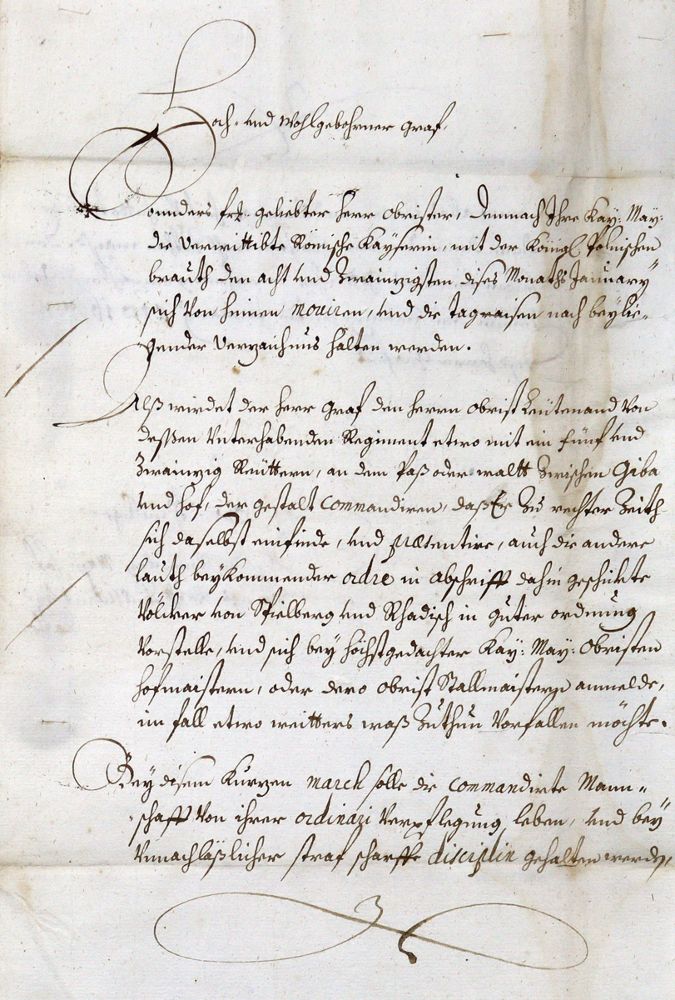 Hoch- vnd Wohlgebohrner Graf.
Sonnders frd: geliebter Herr Obrister, demnach Ihre Kay: May:
die Verwittibte Römische Kayserin, mit der Königl. Polnischen
brauth den acht vnd Zwainzigsten dises Monaths January
sich von hinnen moviren, vnd die tagraisen nach beylie-
gender Verzaichnus halten werden.
Alß wirdet der Herr Graf den Herrn Obrist Leütenand von
deßen Vnterhabenden Regiment etwo mit ein fünf vnd
Zwainzig Reüttern, an dem Paß oder waltt Zwischen Giba
vnd Hof, der gestalt Commandiren, daß Er Zu rechter Zeith
sich daselbst einfinde, vnd præsentire, auch die andere
lauth beykommender ordre in abschrifft dahin geschickte
Völcker von Spielberg vnd Rhadisch in guter ordnung
Vorstelle, vnd sich bey höchstgedachter Kay: May: Obristen
Hofmaistern, oder dero Obrist Stallmaistern anmelde,
im fall etwo weitters waß Zuthun Vorfallen möchte.
Bey disem Kurzen march solle die Commandirte Mann-
schafft Von ihrer ordinazi Verpflegung leben, vnd bey
Vnnachläßlicher straf scharffe disciplin gehalten werden,